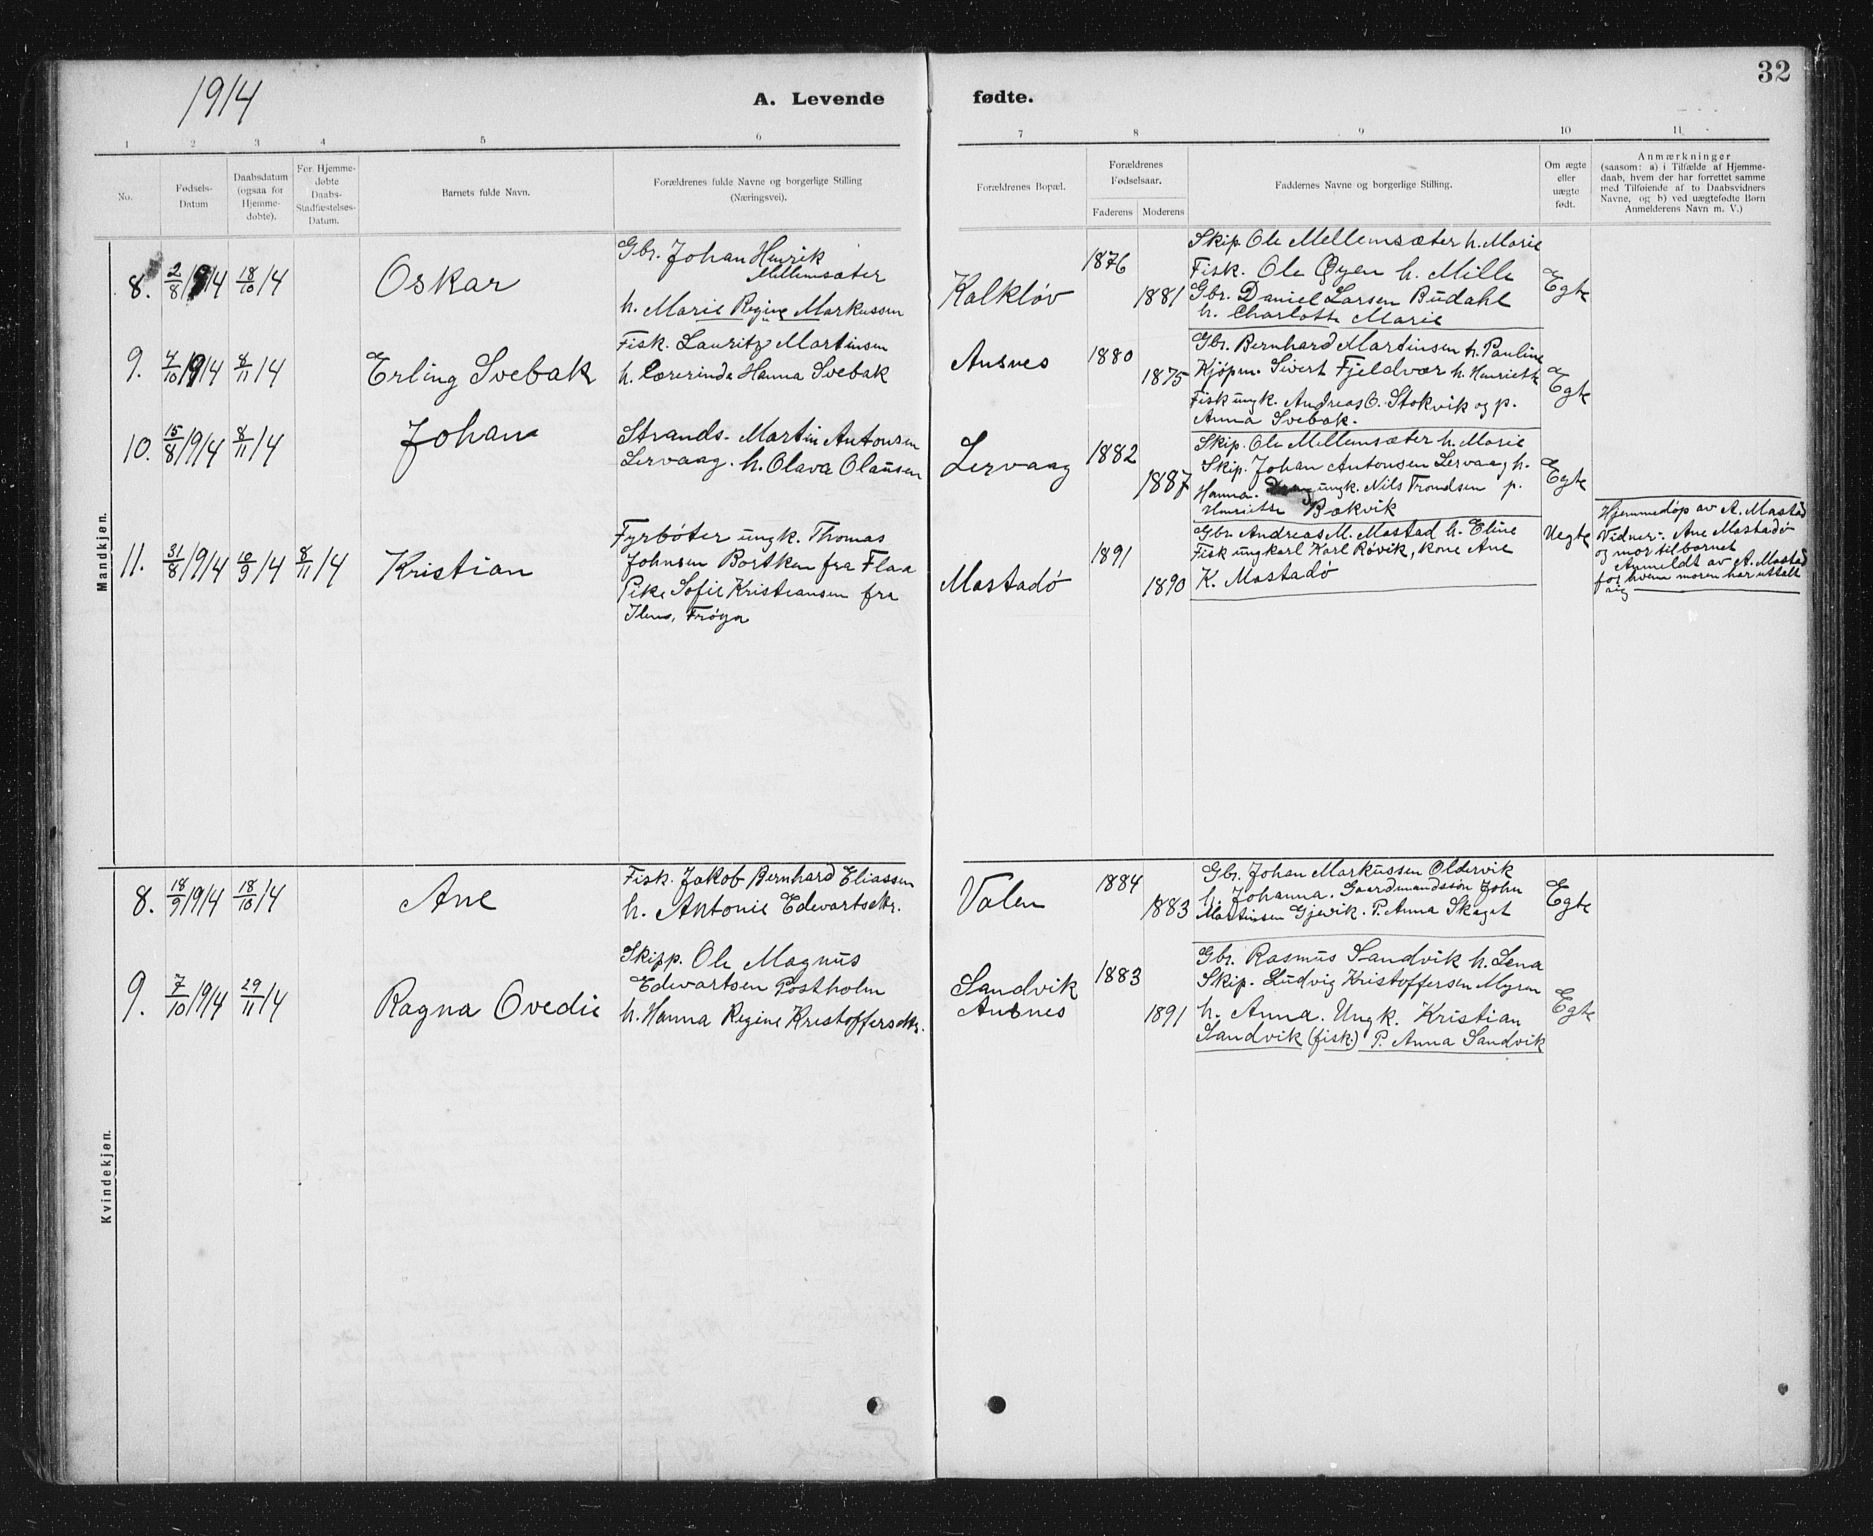 1914
A. Levende fødte.
32
1 2 3 4 5 6 7 8 9 10 11
No.
Fødsels-
Datum
Daabsdatum
(ogsaa for
Hjemme-
døbte).
For Hjemme-
døbte
Daabs-
Stadfæstelses-
Datum.
Barnets fulde Navn.
Forældrenes fulde Navne og borgerlige Stilling
(Næringsvei).
Forældrenes Bopæl.
Forældrenes
Fødselsaar.
Faderens Moderens
Faddernes Navne og borgerlige Stilling.
Om ægte
eller
uægte
født.
Anmærkninger
(saasom: a) i Tilfælde af Hjemme-
daab, hvem der har forrettet samme
med Tilføiende af to Daabsvidners
Navne, og b) ved uægtefødte Børn
Anmelderens Navn m. V.)
Mandkjøn.
8. 2/8 1914 18/10 14
Oskar
Gbr. Johan Henrik
Mellemsæter
h. Marie Regine Markussen
Kalkløv
1876
1881
Skip. Ole Mellemsæter h. Marie
Fisk. Ole Øyen h. Mille
Gbr. Daniel Larsen Budahl
h. Charlotte Marie
Egte
9. 7/10 1914 8/11 14
Erling Svebak
Fisk. Lauritz Martinsen
h. Lærerinde Hanna Svebak
Ansnes
1880
1875
Gbr. Bernhard Martinsen h. Pauline
Kjøpm. Sivert Fjeldvær h. Henriette
Fisk ungk. Andreas O. Stokvik og p.
Anna Svebak.
Egte
10. 15/8 1914 8/11 14
Johan
Strands. Martin Antonsen
Lervaag. h. Olava Olausen
Lervaag
1882
1887
Skip. Ole Mellemsæter h. Marie
Skip. Johan Antonsen Lervaag h.
Hanna. ungk. Nils Trondsen p.
Henriette Bækvik
Egte
11. 31/8 1914 10/9 14 8/11 14
Kristian
Fyrbøter ungk. Thomas
Johnsen Bortken fra Flaa
Pike Sofie Kristiansen fra
Flens, Frøya
Mastadø
1891
1890
Gbr. Andreas M. Mastad h. Eline
Fisk ungkarl Karl Røvik, kone Ane
K. Mastadø
Uegte
Hjemmedøp av A. Mastad
Vidner: Ane Mastadø
og mor til barnet
Anmeldt av A. Mastad
for hvem moren har uttalt
sig
Kvindekjøn.
8. 18/9 1914 18/10 14
Ane
Fisk. Jakob Bernhard Eliassen
h. Antonie Edvartsdtr.
Valen
1884
1883
Gbr. Johan Markussen Oldervik
h. Johanna. Gaardmandssøn John
Martinsen Gjevik. P. Anna Skaget
Egte
9. 7/10 1914 29/11 14
Ragna Ovedie
Skipp. Ole Magnus
Edvartsen Postholm
h. Hanna Regine Kristoffersdtr.
Sandvik
Ansnes
1883
1891
Gbr. Rasmus Sandvik h. Lena
Skip. Ludvig Kristoffersen Myren
h. Anna. Ungk. Kristian
Sandvik (fisk.) P. Anna Sandvik
Egte